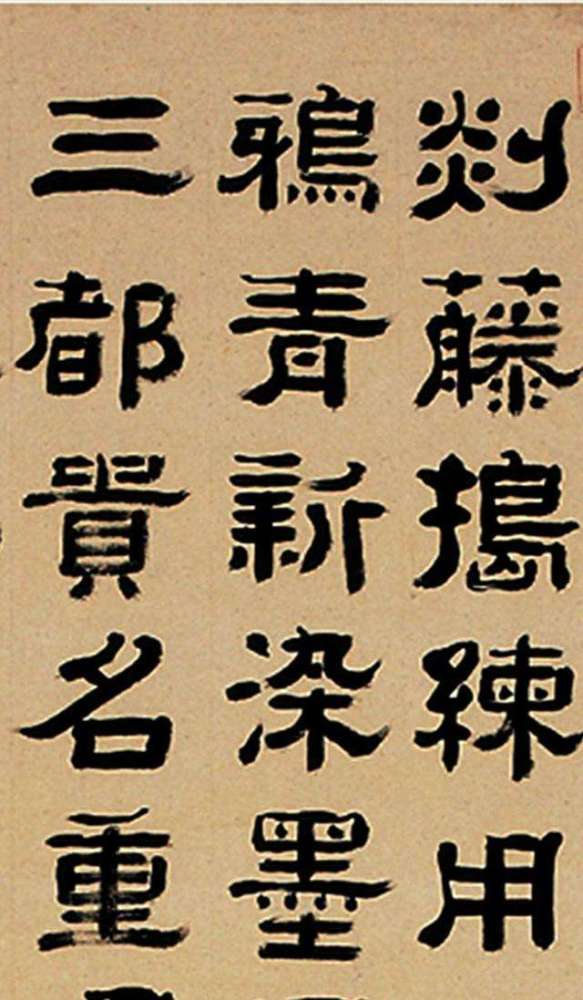 剡藤搗練用
鴉青新染墨
三都貴名重